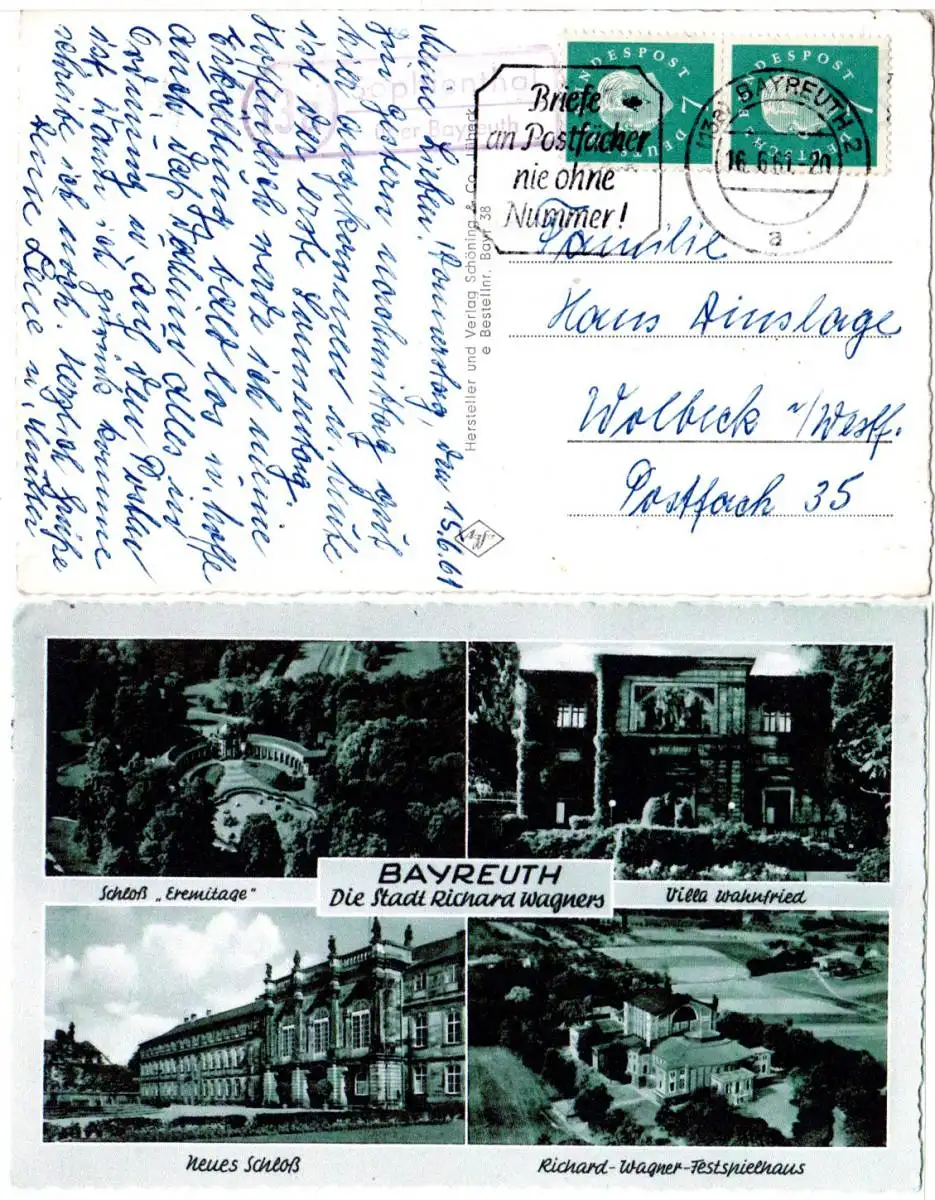 Meine Lieben! Donnerstag, den 15.6.61
Bin gestern nachmittag gut
hier angekommen u. heute
ist der erste Sammeltag.
Hoffentlich werde ich meine
Erkältung bald los u. hoffe
auch, daß daheim alles in
Ordnung u. auf dem Posten
ist, wann ich zurück komme
schreibe ich noch. Herzlich grüße
Eure
(13a) Sophienthal
über Bayreuth
Hersteller und Verlag Schöning & Co., Lübeck
e Bestellnr. Bayr 38
Briefe
an Postfächer
nie ohne
Nummer!
DEUTSCHE BUNDESPOST
7
DEUTSCHE BUNDESPOST
7
(13a) BAYREUTH 2
16.6.61-20
a
Familie
Hans Ainslage
Wolbeck i/Westf.
Postfach 35
BAYREUTH
Die Stadt Richard Wagners
Schloß „Eremitage"
Villa Wahnfried
Neues Schloß
Richard-Wagner-Festspielhaus